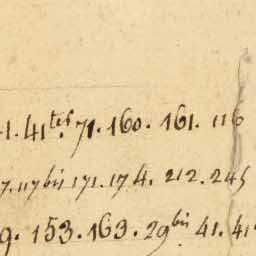 1. 41ter. 71. 160. 161. 116
7. 117bis 171. 174. 212. 245
9. 153. 163. 29bis 41. 41